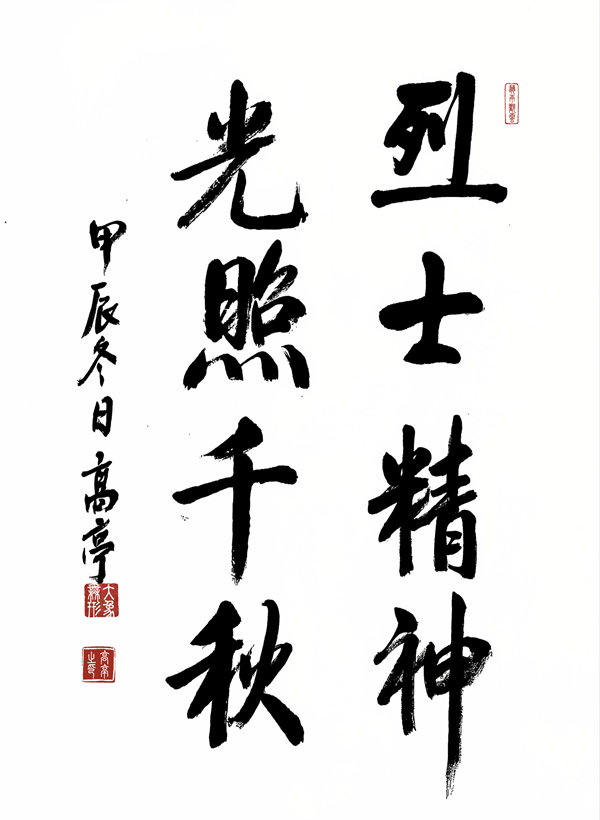 烈士精神
光照千秋
甲辰冬日高亭
大象無形
高亭之印